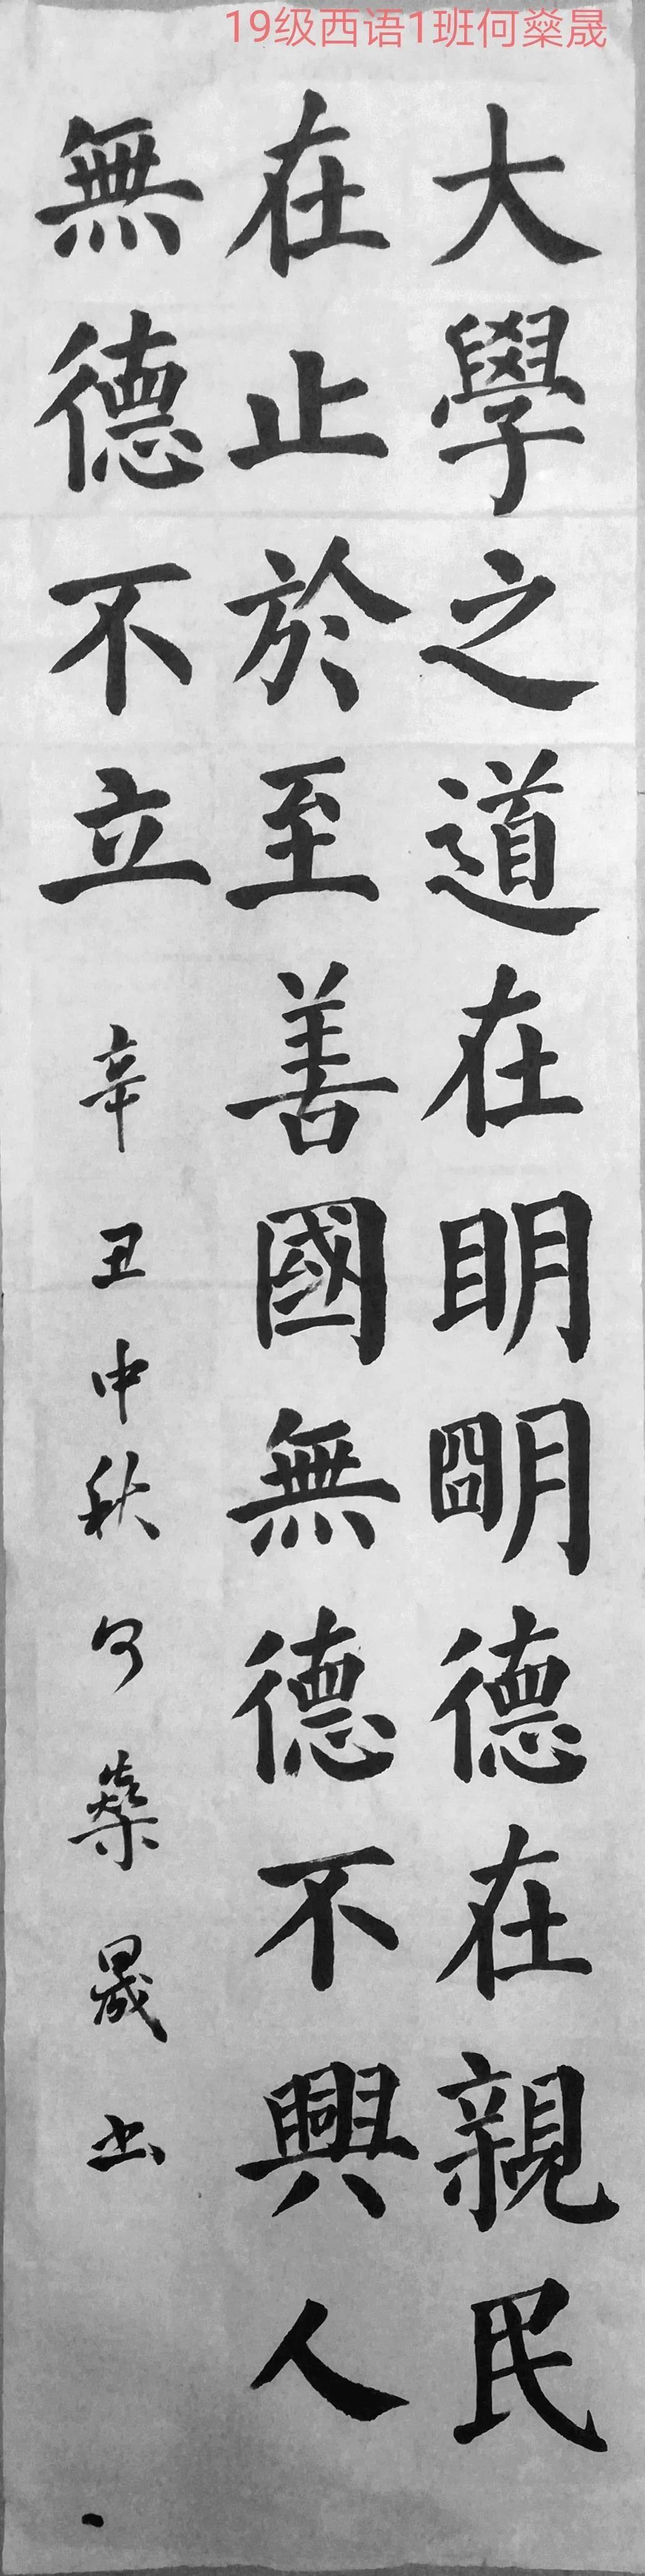 19级西语1班何燊晟
大學之道在明明德在親民
在止於至善國無德不興人
無德不立
辛丑中秋何燊晟书